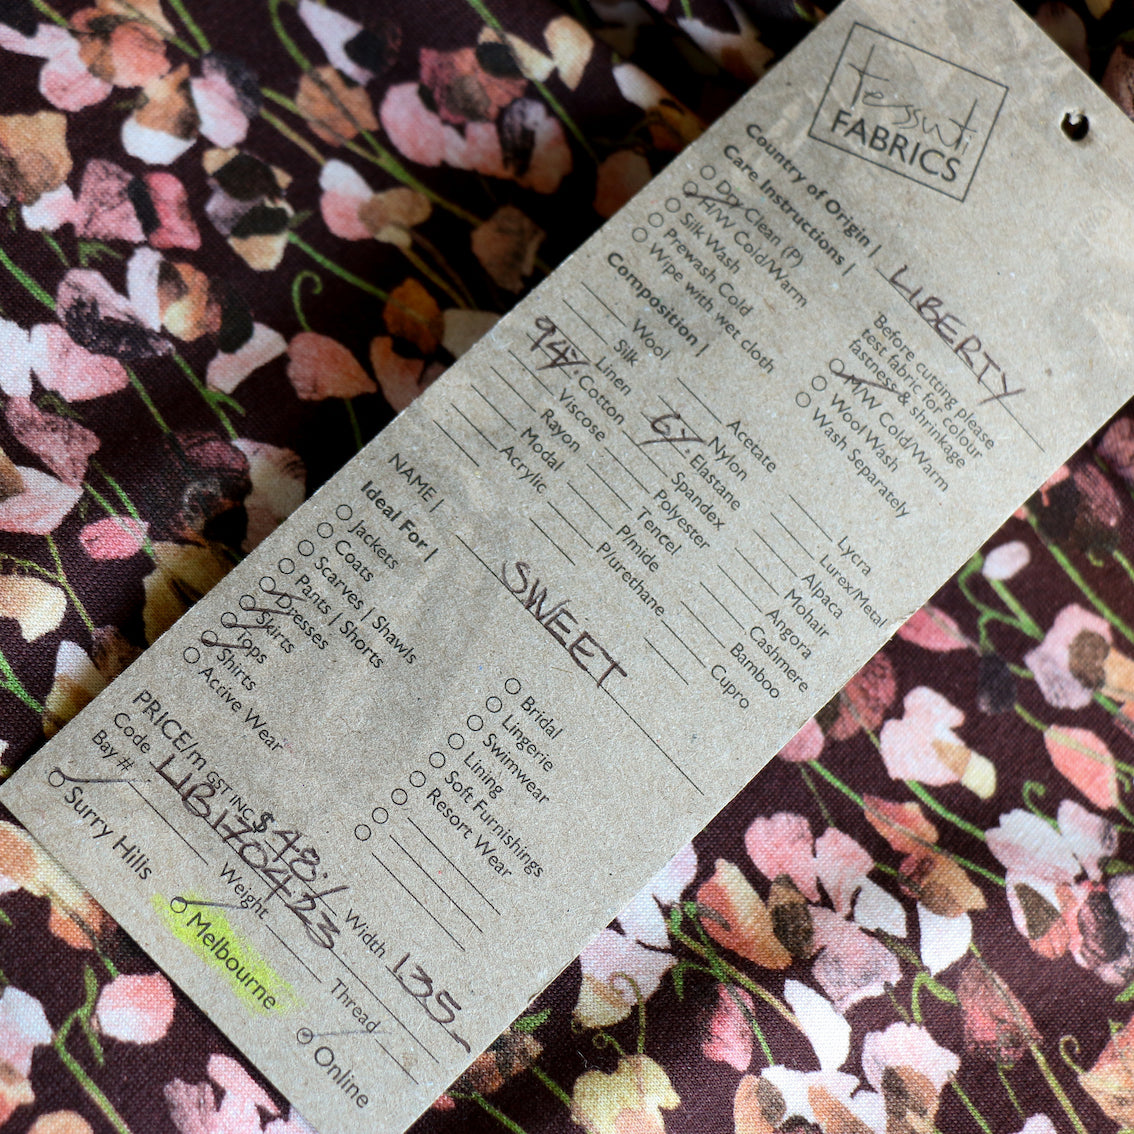 tessuti
FABRICS
Country of Origin | LIBERTY
Care Instructions |
Dry Clean (P)
H/W Cold/Warm
Silk Wash
Prewash Cold
Wipe with wet cloth
Before cutting please
test fabric for colour
fastness & shrinkage
M/W Cold/Warm
Wool Wash
Wash Separately
Composition |
Wool
Silk
Linen
94% Cotton
Viscose
Rayon
Modal
Acrylic
Acetate
Nylon
6% Elastane
Spandex
Polyester
Tencel
P/mide
P/urethane
Lycra
Lurex/Metal
Alpaca
Mohair
Angora
Cashmere
Bamboo
Cupro
NAME | SWEET
Ideal For |
Jackets
Coats
Scarves | Shawls
Pants | Shorts
Dresses
Skirts
Tops
Shirts
Active Wear
Bridal
Lingerie
Swimwear
Lining
Soft Furnishings
Resort Wear
PRICE/m GST INC $ 48.- Width 135
Code LIB170423
Bay # Weight Thread
Surry Hills
Melbourne
Online